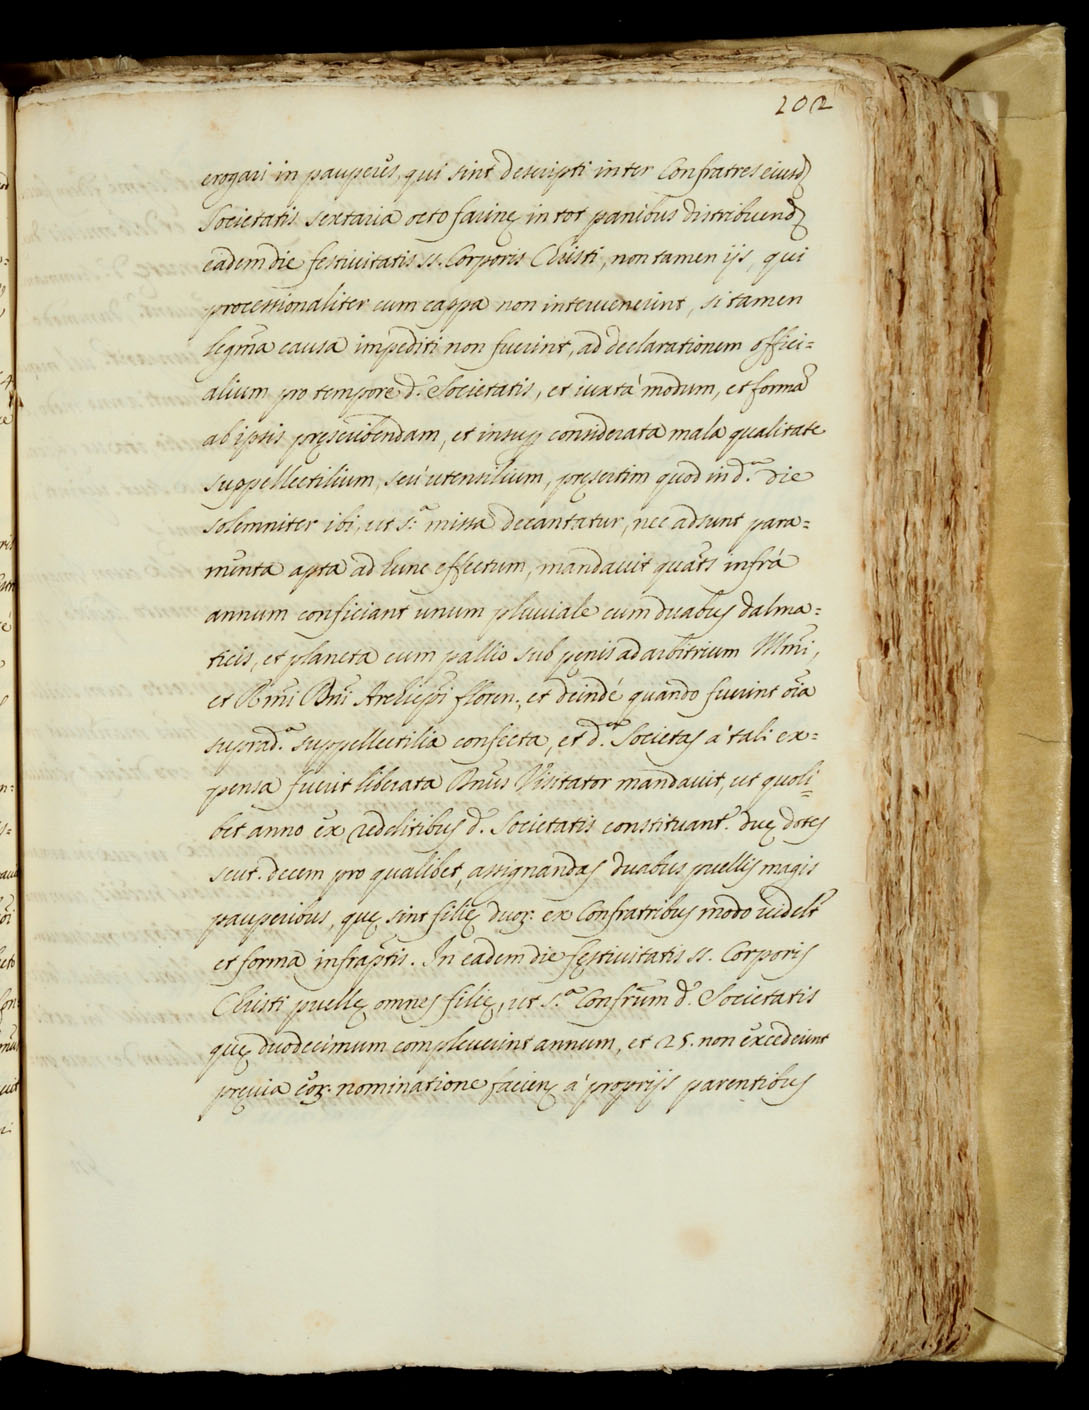 102
erogari in pauperes, qui sint descripti inter Confratres eiusd
Societatis sextaria octo farinę in tot panibus distribuend
eadem die festivitatis ss. Corporis Christi, non tamen ijs, qui
processionaliter cum cappa non intervenerint, si tamen
legma causa impediti non fuerint, ad declarationem offici=
alium pro tempore d.ę Societatis, et iuxtà modum, et formã
ab ipsis pręscribendam, et insup considerata mala qualitate
suppellectilium, seù utensilium, pręsertim quod in d.ª die
solemniter ibi, ut s.ª missa decantatur, nec adsunt para=
menta apta ad hunc effectum, mandavit quats infrà
annum conficiant unum pluviale cum duabus dalma=
ticis, et planeta cum pallio sub pęnis ad arbitrium Illmi,
et Rmi Dni Archiepi floren., et deindé quando fuerint oia
suprad.ª suppellectilia confecta, et d.ª Societas à tali ex=
pensa fuerit liberata Dnus Visitator mandavit, ut quoli=
bet anno ex redditibus d.ę Societatis constituant.r duę dotes
scut. decem pro qualibet, assignandas duabus puellis magis
pauperibus, quę sint filię duor. ex Confratribus modo videlt
et forma infraptis. In eadem die festivitatis ss. Corporis
Christi puellę omnes filię, ut s.ª Confrum d.ę Societatis
quę duodecimum compleverint annum, et 25. non excederint
pręvia eor. nominatione facien à proprijs parentibus